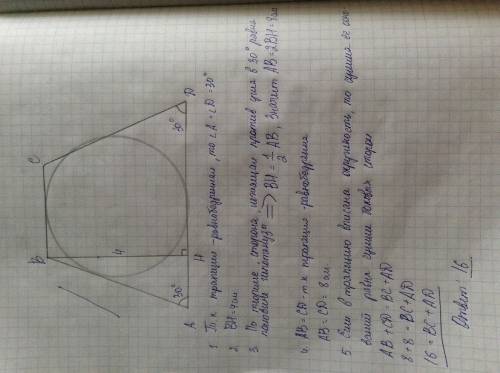 B
C
4
30°
30°
A
H
D
1. Т.к трапеция - равнобедренная, то ∠A = ∠D = 30°
2. BH = 4 см.
3. По теореме: сторона, лежащая против угла в 30° равна
половине гипотенузы ⇒ BH = 1/2 AB, значит AB = 2BH = 8 см
4. AB = CD - т.к трапеция - равнобедренная
AB = CD = 8 см.
5. Если в трапецию вписана окружность, то сумма её осно-
ваний равна сумме боковых сторон
AB + CD = BC + AD
8 + 8 = BC + AD
16 = BC + AD
Ответ: 16